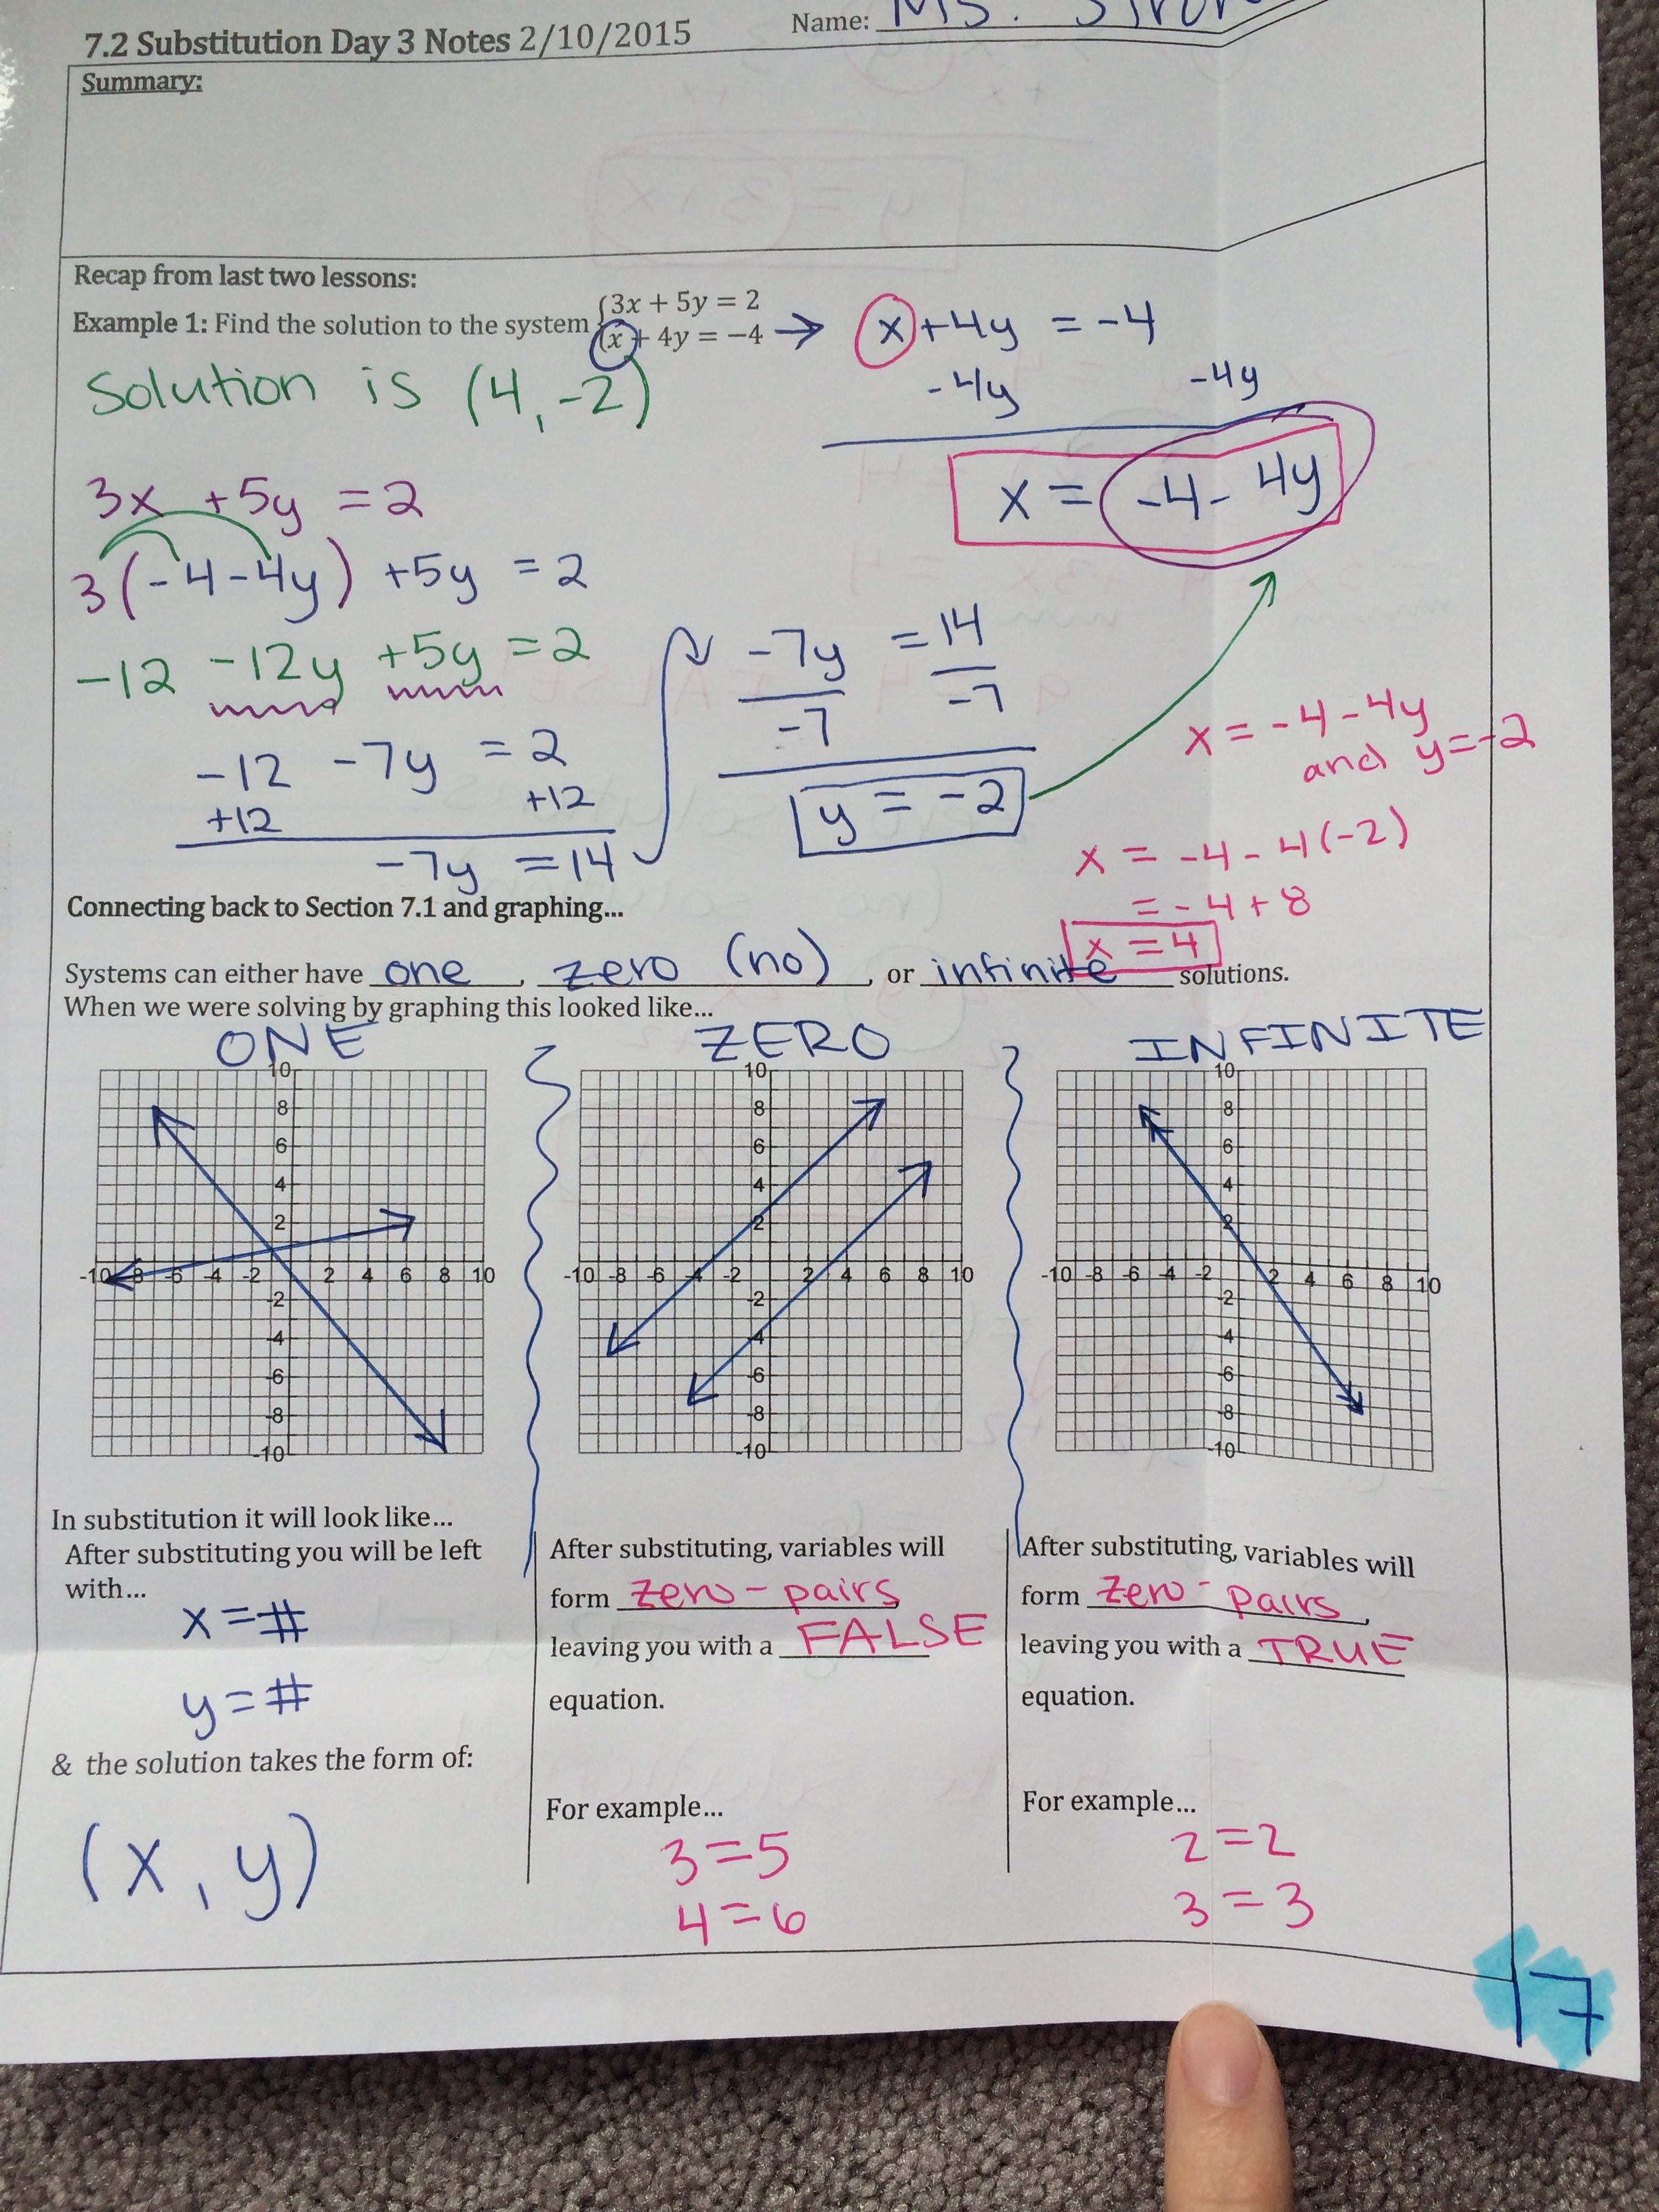 7.2 Substitution Day 3 Notes 2/10/2015
Name: Ms.
Summary:
Recap from last two lessons:
Example 1: Find the solution to the system {3x + 5y = 2
x + 4y = −4 → x + 4y = -4
-4y -4y
x = -4 - 4y
Solution is (4, -2)
3x + 5y = 2
3(-4-4y) +5y = 2
-12 -12y +5y = 2
-12 -7y = 2
+12 +12
-7y = 14
-7y = 14
-7 -7
y = -2
x = -4 - 4y
and y = -2
x = -4 - 4(-2)
= -4 + 8
x = 4
Connecting back to Section 7.1 and graphing...
Systems can either have one, zero (no), or infinite solutions.
When we were solving by graphing this looked like...
ONE ZERO INFINITE
10
8
6
4
2
-10 -8 -6 -4 -2 2 4 6 8 10
-2
-4
-6
-8
-10
10
8
6
4
2
-10 -8 -6 -4 -2 2 4 6 8 10
-2
-4
-6
-8
-10
10
8
6
4
2
-10 -8 -6 -4 -2 2 4 6 8 10
-2
-4
-6
-8
-10
In substitution it will look like...
After substituting you will be left
with...
x = #
y = #
& the solution takes the form of:
(x, y)
After substituting, variables will
form zero-pairs
leaving you with a FALSE
equation.
For example...
3=5
4=6
After substituting, variables will
form zero-pairs,
leaving you with a TRUE
equation.
For example...
2=2
3=3
17